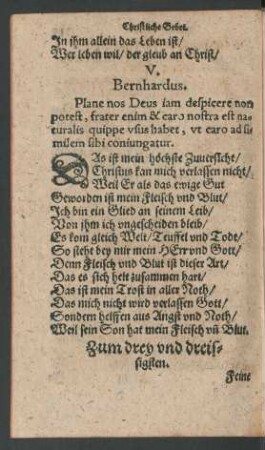 Christliche Gebet.
In jhm allein das Leben ist/
Wer leben wil/ der gleub an Christ/
V.
Bernhardus.
Plane nos Deus iam despicere non
potest, frater enim & caro nostra est na-
turalis quippe vsus habet, vt caro ad si-
milem sibi coniungatur.
DAs ist mein höchste Zuuersicht/
Christus kan mich verlassen nicht/
Weil Er als das ewige Gut
Geworden ist mein Fleisch vnd Blut/
Ich bin ein Glied an seinem Leib/
Von jhm ich vngescheiden bleib/
Es kom gleich Welt/ Teuffel vnd Todt/
So stehet bey mir mein HErr vnd Gott/
Denn Fleisch vnd Blut ist dieser Art/
Das es sich helt zusammen hart/
Das ist mein Trost in aller Noth/
Das mich nicht wird verlassen Gott/
Sondern helffen aus Angst vnd Noth/
Weil sein Son hat mein Fleisch vñ Blut.
Zum drey vnd dreis-
sigsten.
Feine